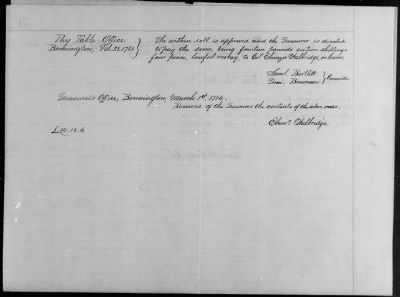 Pay Table Office
Bennington, Feb. 28, 1784
The within roll is approved and the Treasurer is directed
to pay the same, being fourteen pounds sixteen shillings
four pence, lawful money, to Col. Ebenezr Walbridge, or bearer.
Committee
Treasurer's Office, Bennington March 1st, 1784.
Received of the Treasurer the contents of the above order.
Ebenr. Walbridge
£14.16.4